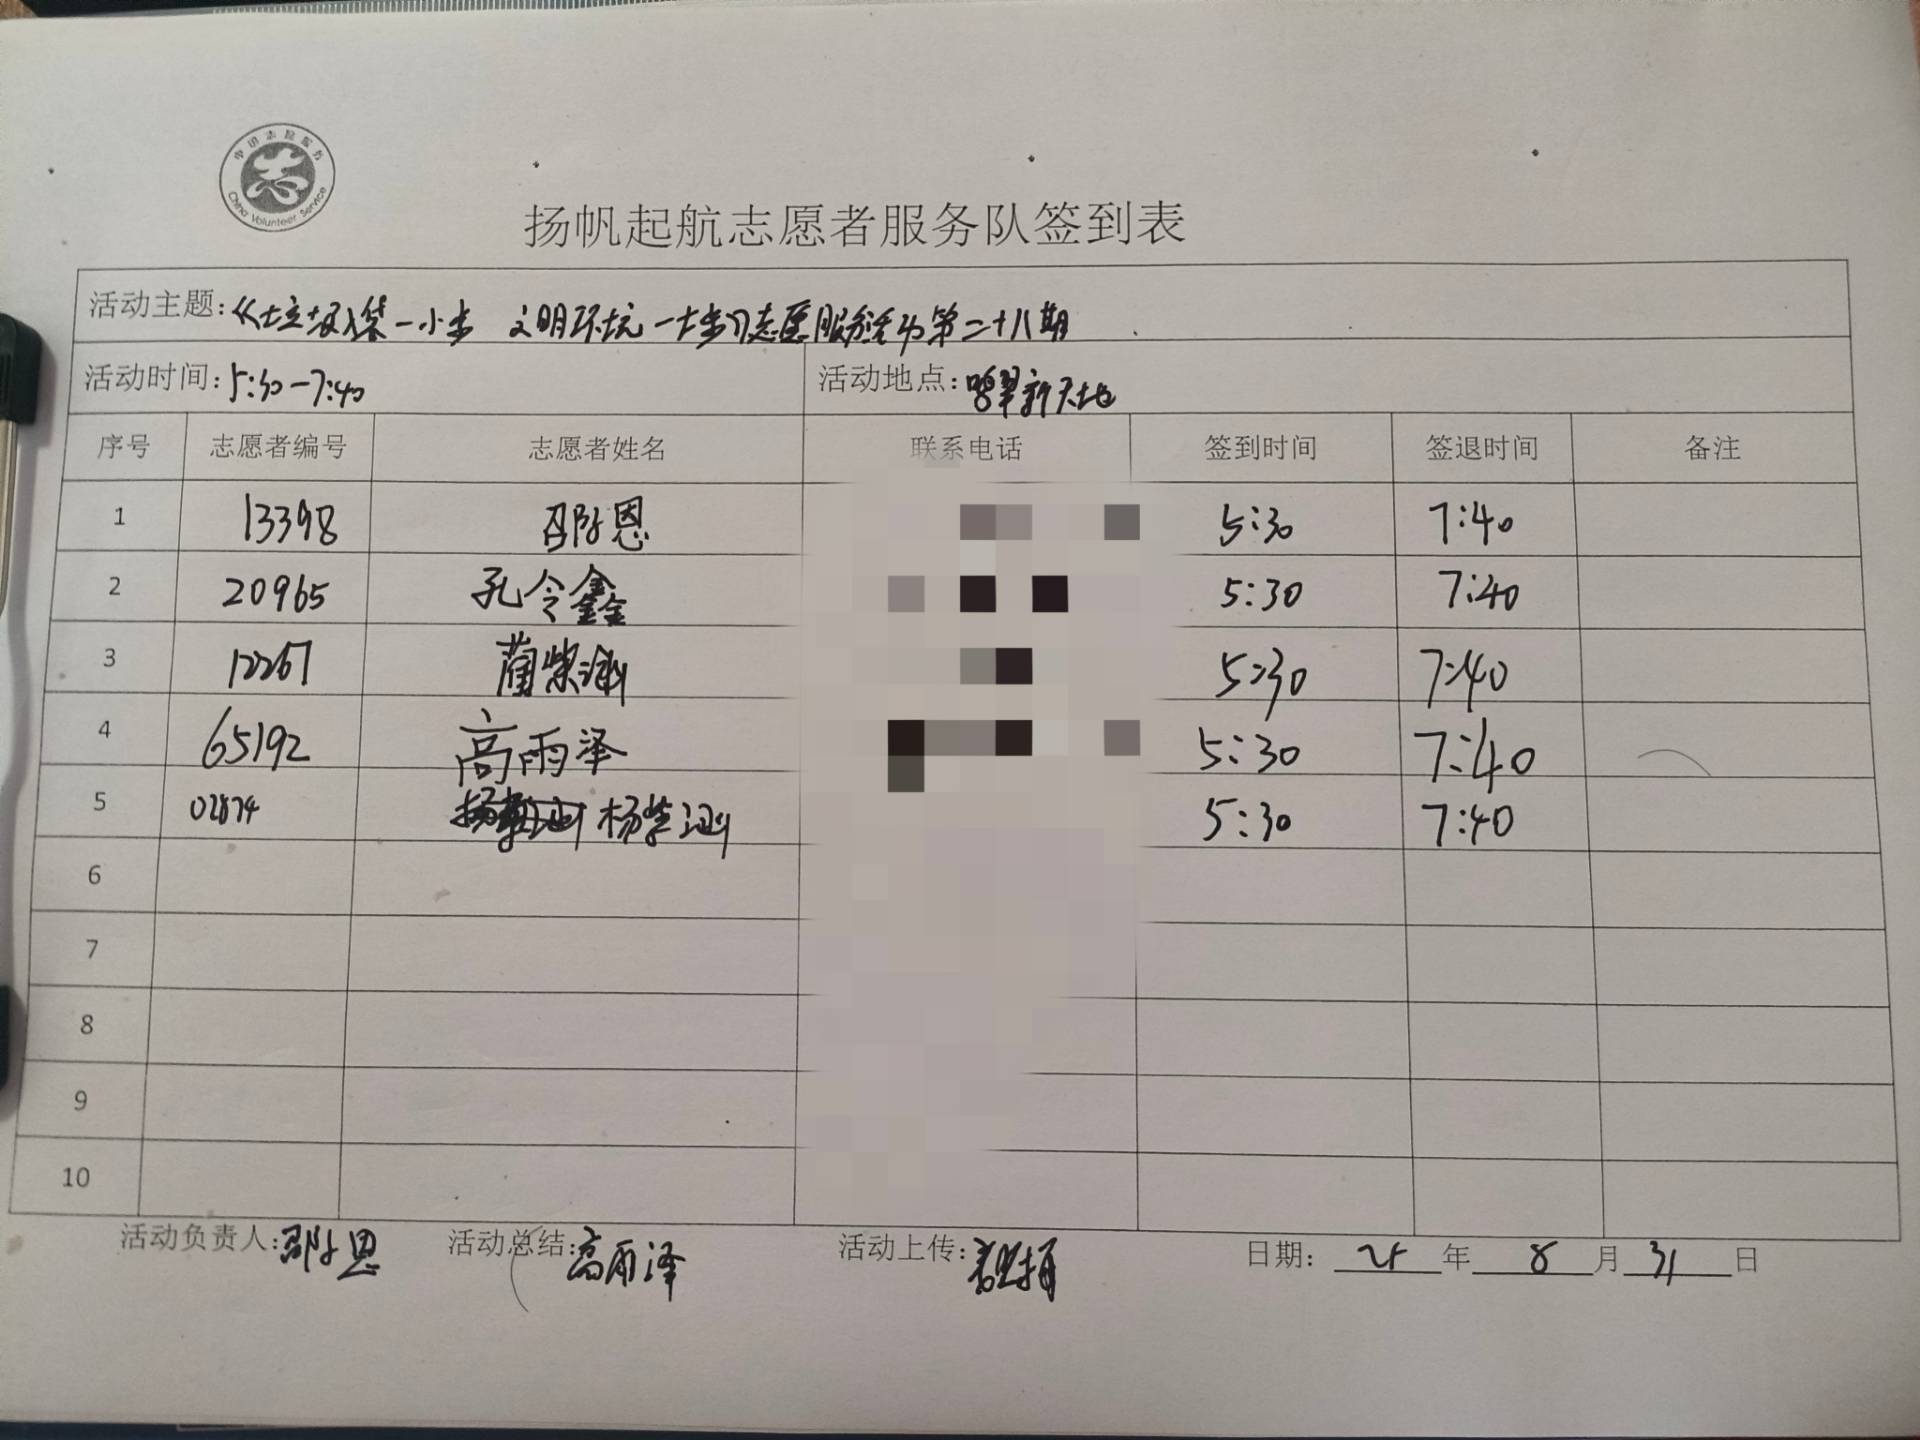 中国志愿服务
China Volunteer Service
扬帆起航志愿者服务队签到表
活动主题:《垃圾入袋一小步 文明环境一大步》志愿服务活动第二十八期
活动时间:5:30-7:40 活动地点:鸣翠新天地
序号 志愿者编号 志愿者姓名 联系电话 签到时间 签退时间 备注
1 13398 邵恩 5:30 7:40
2 20965 孔令鑫 5:30 7:40
3 12267 蔺紫涵 5:30 7:40
4 65192 高雨泽 5:30 7:40
5 02874 杨紫涵 5:30 7:40
6
7
8
9
10
活动负责人:邵恩 活动总结:高雨泽 活动上传: 日期: 25年8月31日